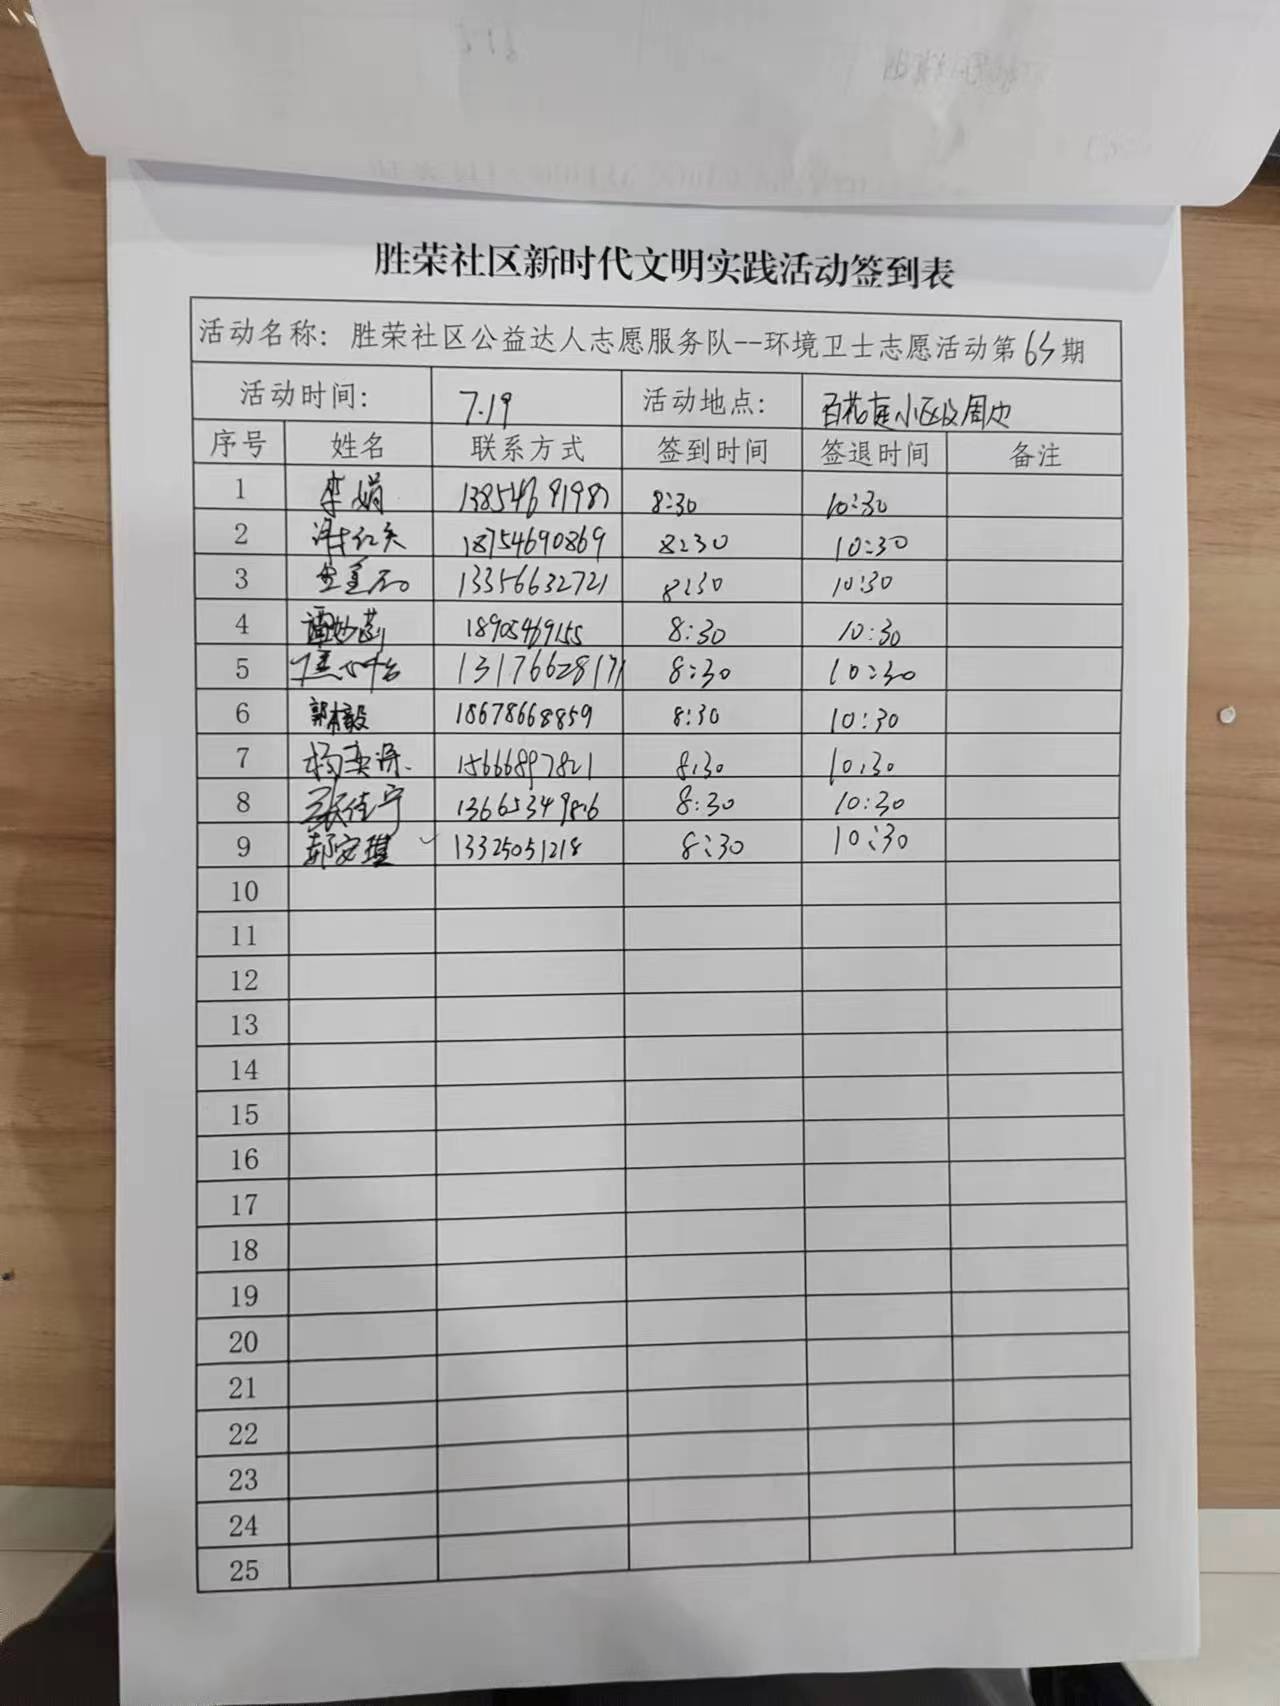 胜荣社区新时代文明实践活动签到表
活动名称：胜荣社区公益达人志愿服务队--环境卫士志愿活动第65期
活动时间： 7.19 活动地点： 百花庭小区及周边
序号 姓名 联系方式 签到时间 签退时间 备注
1 李娟 8:30 10:30
2 18754690869 8:30 10:30
3 13356632721 8:30 10:30
4 谭妙菡 18905469155 8:30 10:30
5 13176628171 8:30 10:30
6 18678668859 8:30 10:30
7 15666897821 8:30 10:30
8 张佳宁 8:30 10:30
9 郝安琪 13325051218 8:30 10:30
10
11
12
13
14
15
16
17
18
19
20
21
22
23
24
25